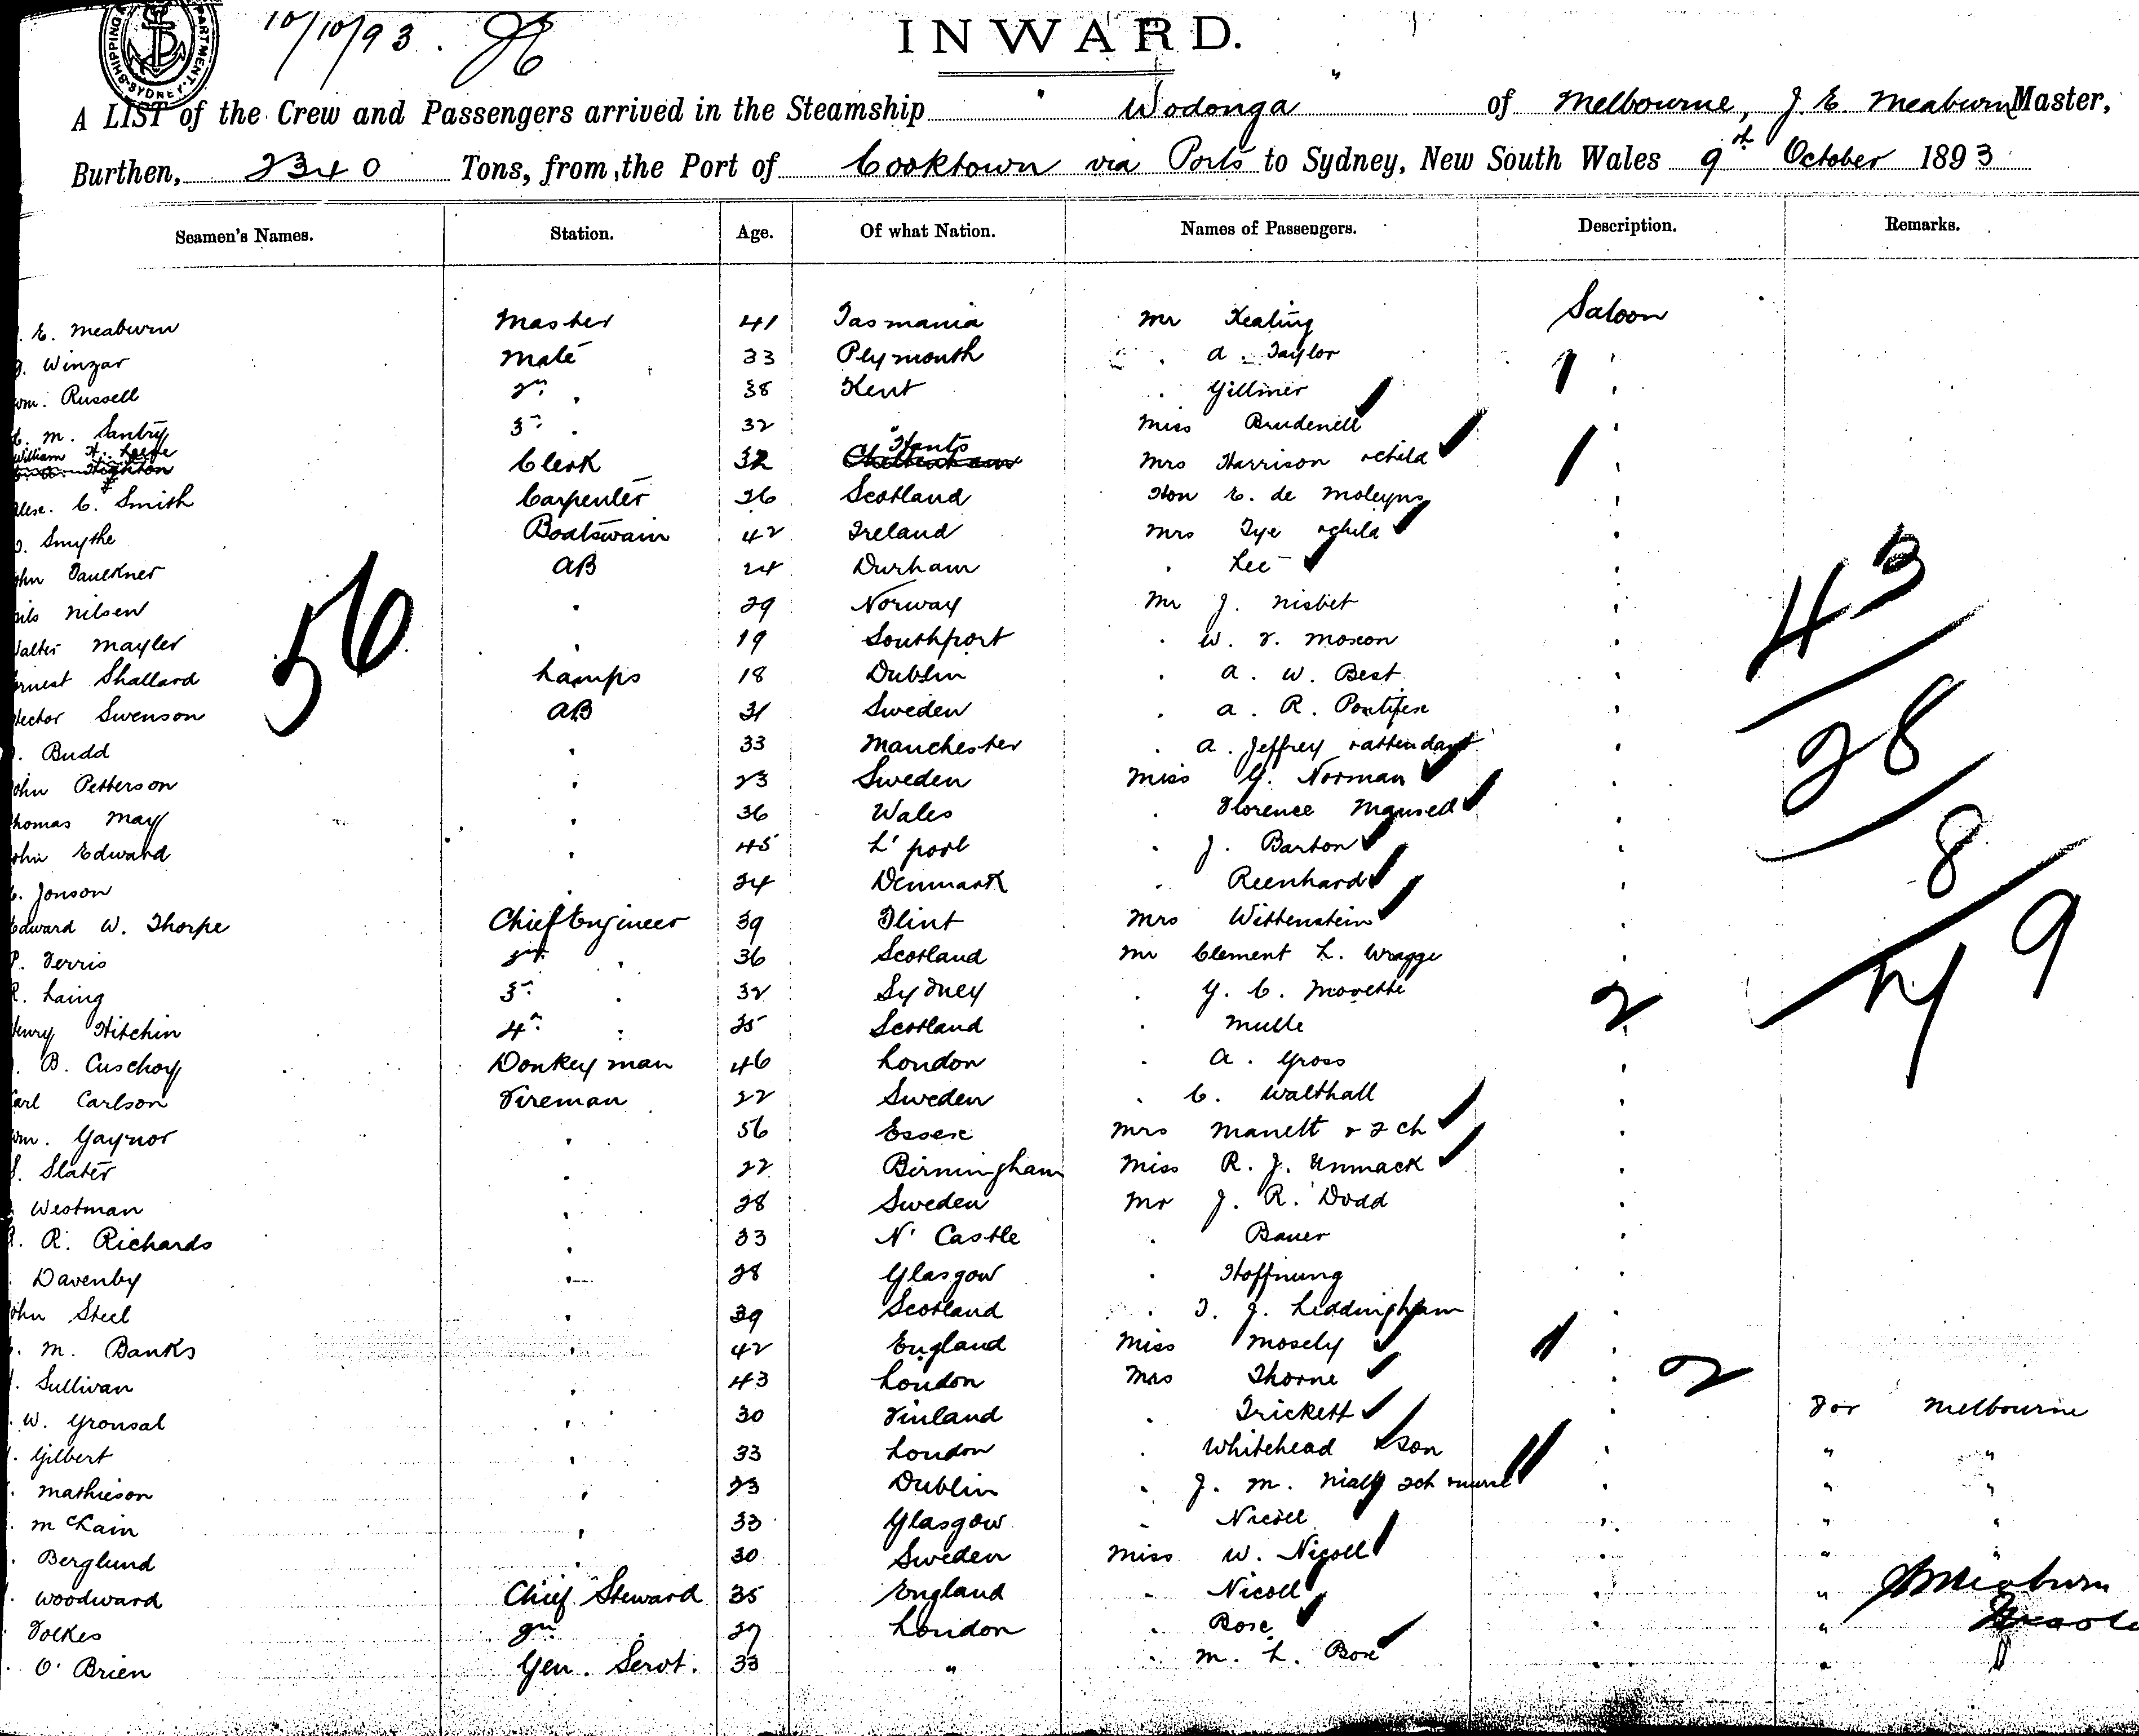 SHIPPING DEPARTMENT. SYDNEY.
10/10/93.
INWARD.
A LIST of the Crew and Passengers arrived in the Steamship "Wodonga" of Melbourne, J. E. Meaburn Master,
Burthen, 2340 Tons, from the Port of Cooktown via Ports to Sydney, New South Wales 9th October 1893
Seamen's Names. Station. Age. Of what Nation. Names of Passengers. Description. Remarks.
. E. Meaburn Master 41 Tasmania Mr Keating Saloon
J. Winzar Mate 33 Plymouth " A. Taylor "
Wm. Russell 2nd " 38 Kent " Gillmer "
M. Santry 3rd " 32 Miss Brudenell
William H. Clerk 32 Hants Mrs Harrison & child "
Alex. C. Smith Carpenter 26 Scotland Hon E. de Moleyns "
. Smythe Boatswain 42 Ireland Mrs Tye & child "
ohn Faulkner AB 24 Durham " Lee "
ils Nilsen " 29 Norway Mr J. Nisbet "
alter Mayler " 19 Southport " W. F. Moxon "
rnest Shallard Lamps 18 Dublin " A. W. Best "
ector Swenson AB 31 Sweden " A. R. Pontifex "
. Budd " 33 Manchester " A. Jeffrey & attendant "
ohn Petterson " 23 Sweden Miss G. Norman "
homas May " 36 Wales " Florence Maunsell "
ohn Edward " 45 L'pool " J. Barton "
. Jonson " 24 Denmark " Reenhard "
Edward W. Thorpe Chief Engineer 39 Flint Mrs Wittenstein "
P. Ferris 2nd " 36 Scotland Mr Clement L. Wragge "
R. Laing 3rd " 32 Sydney " G. C. Morette
Henry Hitchin 4th " 25 Scotland " Mulle "
. B. Cuschoy Donkeyman 46 London " A. Gross "
arl Carlson Fireman 22 Sweden " C. Walthall "
Wm. Gaynor " 56 Essex Mrs Manett & 2 ch "
S. Slater " 22 Birmingham Miss R. J. Unmack "
Westman " 28 Sweden Mr J. R. Dodd "
. R. Richards " 33 N'Castle " Bauer "
. Davenby " 28 Glasgow " Hoffnung "
ohn Steel " 39 Scotland " T. J. Leddingham
. M. Banks " 42 England Miss Mosely "
. Sullivan " 43 London Mrs Thorne "
. W. Gronsal " 30 Finland " Trickett " For Melbourne
. Gilbert " 33 London " Whitehead & son " " "
. Mathieson " 23 Dublin " J. M. Niall 2 ch nurse " " "
. McLain " 33 Glasgow " Nicoll " " "
. Berglund " 30 Sweden Miss W. Nicoll " " "
. Woodward Chief Steward 35 England " Nicoll " "
. Folkes 2nd 27 London " Bose " "
. O'Brien Gen. Servt. 33 " " M. L. Bose " "
56
43
28
8
79
2
2